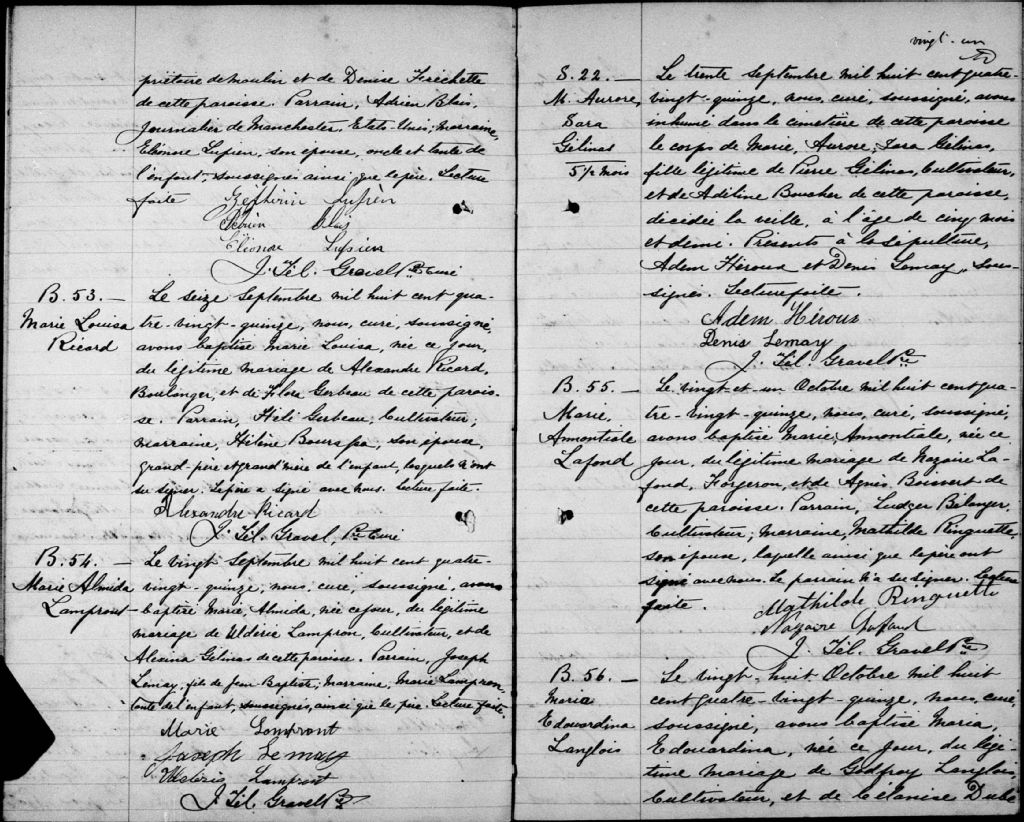 priétaire de moulin et de Denise Fréchette
de cette paroisse. Parrain, Adrien Blais,
Journalier de Manchester, Etats-Unis; Marraine,
Eléonore Lupien, son épouse, oncle et tante de
l'enfant, soussignés ainsi que le père. Lecture
faite
Zéphirin Lupien
Adrien Blais
Eléonore Lupien
J. Fél. Gravel Ptre Curé
B. 53. —
Marie Louisa
Ricard
Le seize Septembre mil huit cent qua-
tre-vingt-quinze, nous, curé, soussigné,
avons baptisé Marie Louisa, née ce jour,
du légitime mariage de Alexandre Ricard,
Boulanger, et de Flora Gerbeau de cette parois-
se. Parrain, Héli Gerbeau, Cultivateur;
marraine, Hélène Bourassa, son épouse,
grand-père et grand'mère de l'enfant, lesquels n'ont
su signer. Le père a signé avec nous. Lecture faite.
Alexandre Ricard
J. Fél. Gravel, Ptre Curé
B. 54. —
Marie Almida
Lampront
Le vingt Septembre mil huit cent quatre-
vingt-quinze, nous, curé, soussigné, avons
baptisé Marie, Almida, née ce jour, du légitime
mariage de Uldéric Lampron, Cultivateur, et de
Alexina Gélinas de cette paroisse. Parrain, Joseph
Lemay, fils de Jean Baptiste; Marraine, Marie Lampron,
tante de l'enfant, soussignés, ainsi que le père. Lecture faite.
Marie Lampront
Joseph Lemay
Uldéric Lampront
J. Fél. Gravel Ptre
vingt-un
S. 22. —
M. Aurore,
Sara
Gélinas
5 1/2 mois
Le trente Septembre mil huit cent quatre-
vingt-quinze, nous, curé, soussigné, avons
inhumé dans le cimetière de cette paroisse
le corps de Marie, Aurore, Sara Gélinas,
fille légitime de Pierre Gélinas, Cultivateur,
et de Adéline Boucher de cette paroisse,
décédée la veille, à l'âge de cinq mois
et demi. Présents à la sépulture,
Adem Héroux et Denis Lemay, sous-
signés. Lecture faite.
Adem Héroux
Denis Lemay
J. Fél. Gravel Ptre
B. 55. —
Marie,
Annontiale
Lafond
Le vingt et un Octobre mil huit cent qua-
tre-vingt-quinze, nous, curé, soussigné,
avons baptisé Marie, Annontiale, née ce
jour, du légitime mariage de Nazaire La-
fond, Forgeron, et de Agnès Boisvert de
cette paroisse. Parrain, Ludger Bélanger,
Cultivateur; marraine, Mathilde Ringuette,
son épouse, laquelle ainsi que le père ont
signé avec nous. Le parrain n'a su signer. Lecture
faite.
Mathilde Ringuette
Nazaire Lafond
J. Fél. Gravel Ptre
B. 56. —
Maria
Edouardina
Langlois
Le vingt-huit Octobre mil huit
cent quatre-vingt-quinze, nous, curé,
soussigné, avons baptisé Maria,
Edouardina, née ce jour, du légi-
time mariage de Godfroy Langlois,
Cultivateur, et de Célanise Dubé